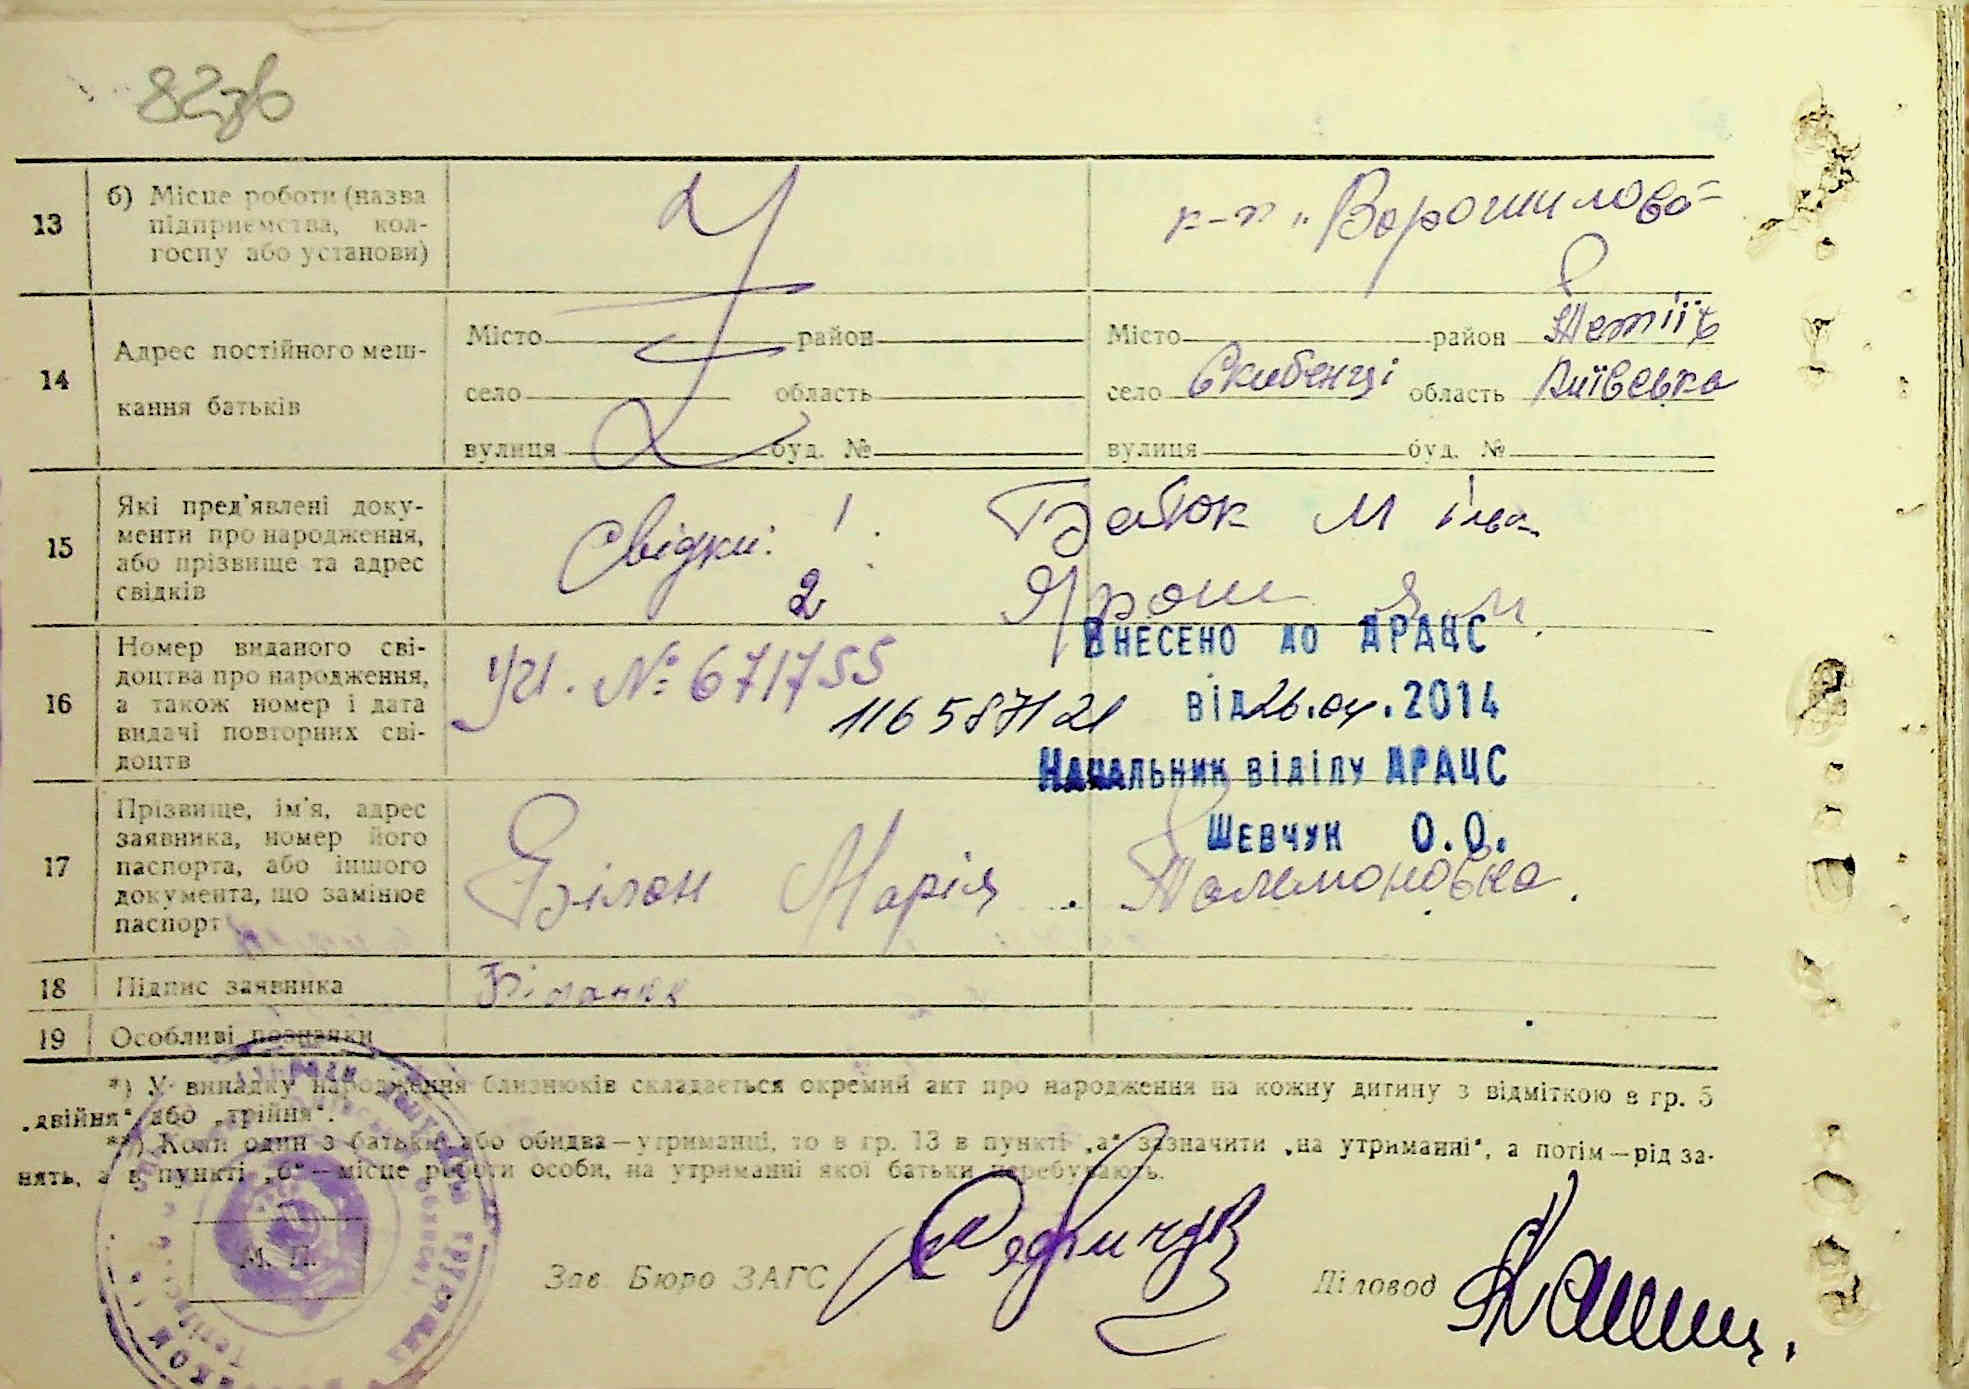 13 б) Місце роботи (назва
підприємства, кол-
госпу або установи)
к-п „Ворошилова"
14 Адрес постійного меш-
кання батьків
Місто район Місто район Тетіїв
село область село Скибенці область Київська
вулиця буд. № вулиця буд. №
15 Які пред'явлені доку-
менти про народження,
або прізвище та адрес
свідків
Свідки: 1. Бабюк М
2 Ярош Я М.
16 Номер виданого сві-
доцтва про народження,
а також номер і дата
видачі повторних сві-
доцтв
№ 671755
11658712
Внесено до ДРАЦС
від 26.04.2014
Начальник відділу ДРАЦС
Шевчук О.О.
17 Прізвище, ім'я, адрес
заявника, номер його
паспорта, або іншого
документа, що замінює
паспорт
Білон Марія Палимоновна.
18 Підпис заявника
19 Особливі познаяки
*) У випадку народження близнюків складається окремий акт про народження на кожну дитину з відміткою в гр. 5
„двійня" або „трійня".
**) Коли один з батьків або обидва—утриманці, то в гр. 13 в пункті „а" зазначити „на утриманні", а потім—рід за-
нять, а в пункті „б"—місце роботи особи, на утриманні якої батьки перебувають.
М. П.
Зав. Бюро ЗАГС
Діловод